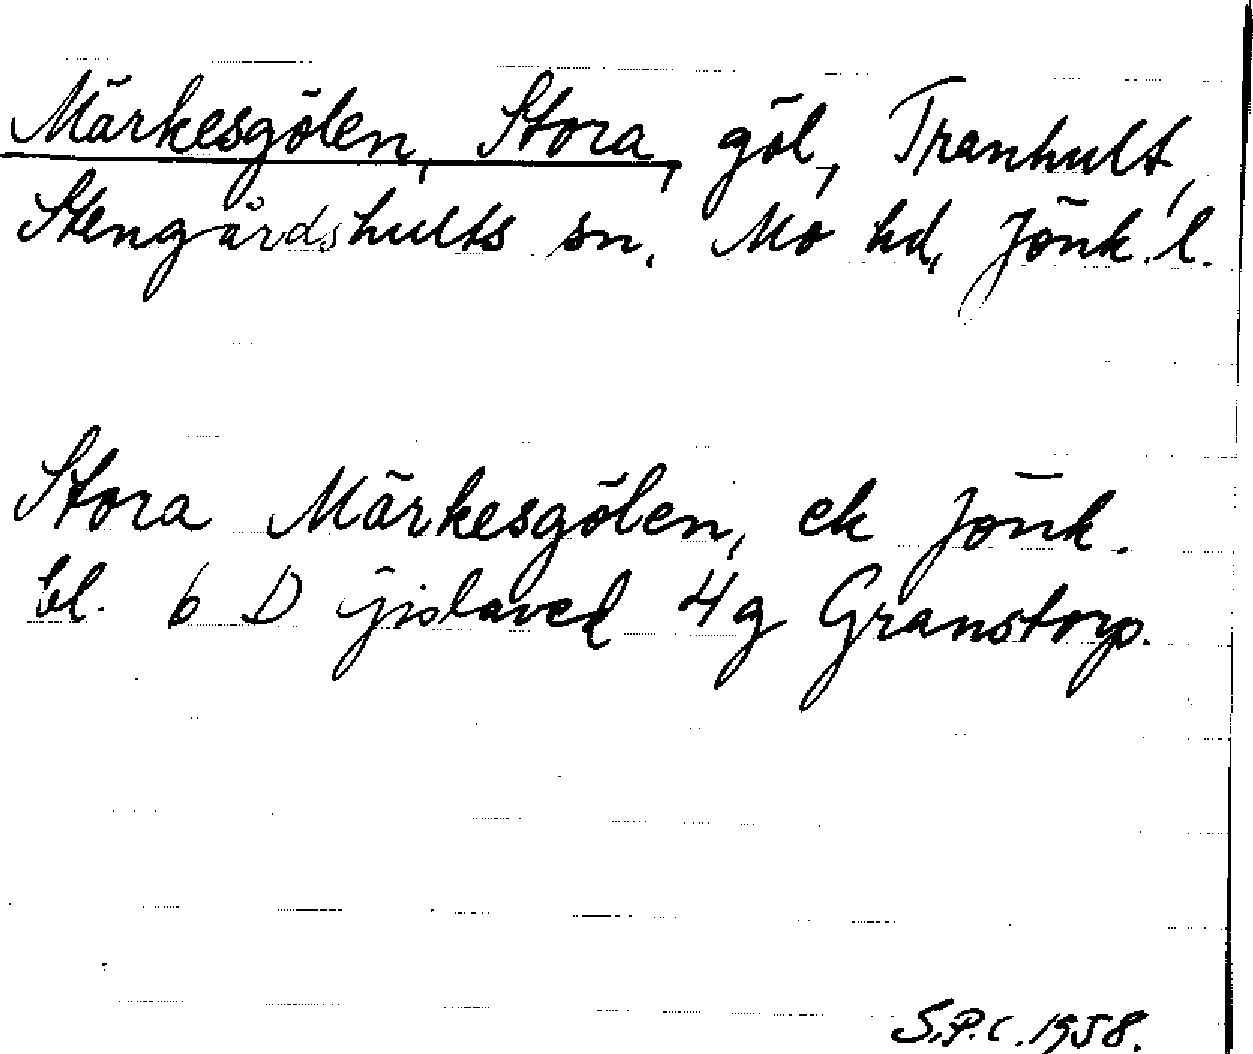 Märkesgölen, Stora, göl, Tranhult,
Stengårdshults sn, Mo hd, Jönk. l.
Stora Märkesgölen, ek Jönk.
bl. 6 D Gislaved 4g Granstorp.
S.P.C. 1958.